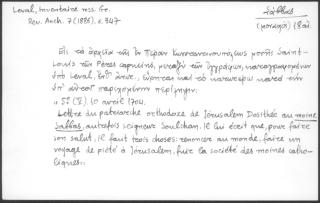 Laval, Inventaire mss. Gr.
Rev. Arch. 7 (1886). σ. 347
Σάββας
(μοναχός) 18 αἰ.
Εἰς τὰ ἀρχεῖα τῆς ἐν Πέραν Κωνσταντινουπόλεως μονῆς Saint-
Louis τῶν Pères capucins, μεταξὺ τῶν ἐγγράφων, καταγραφομένων
ὑπὸ Laval, ἔνθ' ἀνωτ., εὕρηται καὶ τὸ κατωτέρω κατὰ τὴν
ὑπ' αὐτοῦ παρεχομένην περίληψιν:
« 5º (V). 10 avril 1704.
Lettre du patriarche orthodoxe de Jérusalem Dosithée au moine
Sabbas, autrefois seigneur Soulchan. Il lui écrit que, pour faire
son salut, il faut trois choses: renoncer au monde, faire un
voyage de piété à Jérusalem, fuir la société des moines catho-
liques».